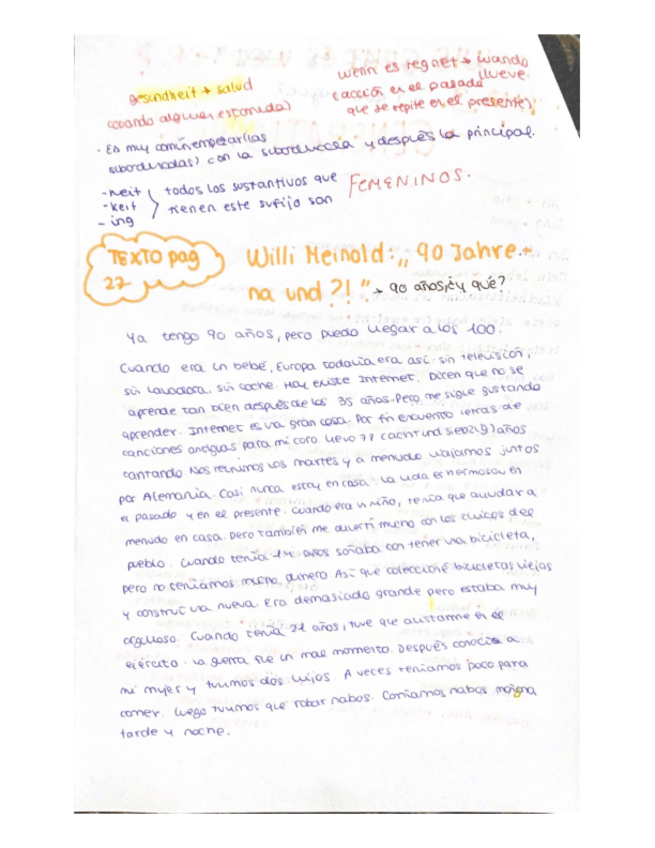 gesundheit → salud
(cuando alguien estornuda)
wenn es regnet → cuando llueve.
(acción en el pasado
que se repite en el presente)
· En muy común empezar (las
subordinadas) con la subordinada y después la principal.
-heit
-keit
- ing
todos los sustantivos que
tienen este sufijo son
FEMENINOS.
TEXTO pag
27
Willi Meinold: „ 90 Jahre -
na und ?! " → 90 años, ¿y qué?
Ya tengo 90 años, pero puedo llegar a los 100.
Cuando era un bebé, Europa todavía era así: sin television,
sin lavadora, sin coche. Hoy existe Internet. Dicen que no se
aprende tan bien después de los 35 años. Pero me sigue gustando
aprender. Internet es una gran cosa. Por fin encuentro letras de
canciones antiguas para mi coro. llevo 78 (achtundsiebzig) años
cantando. Nos reunimos los martes y a menudo viajamos juntos
por Alemania. Casi nunca estoy en casa. La vida es hermosa: en
el pasado y en el presente. Cuando era un niño, tenía que ayudar a
menudo en casa. pero también me divertí mucho con los chicos del
pueblo. Cuando tenía 14 años soñaba con tener una bicicleta,
pero no teníamos mucho dinero. Así que coleccioné bicicletas viejas
y construí una nueva. Era demasiado grande pero estaba muy
orgulloso. Cuando tenía 21 años, tuve que alistarme en el
ejército. La guerra fue un mal momento. Después conocí a
mi mujer y tuvimos dos hijos. A veces teníamos poco para
comer. Luego tuvimos que robar nabos. Comíamos nabos mañana
tarde y noche.